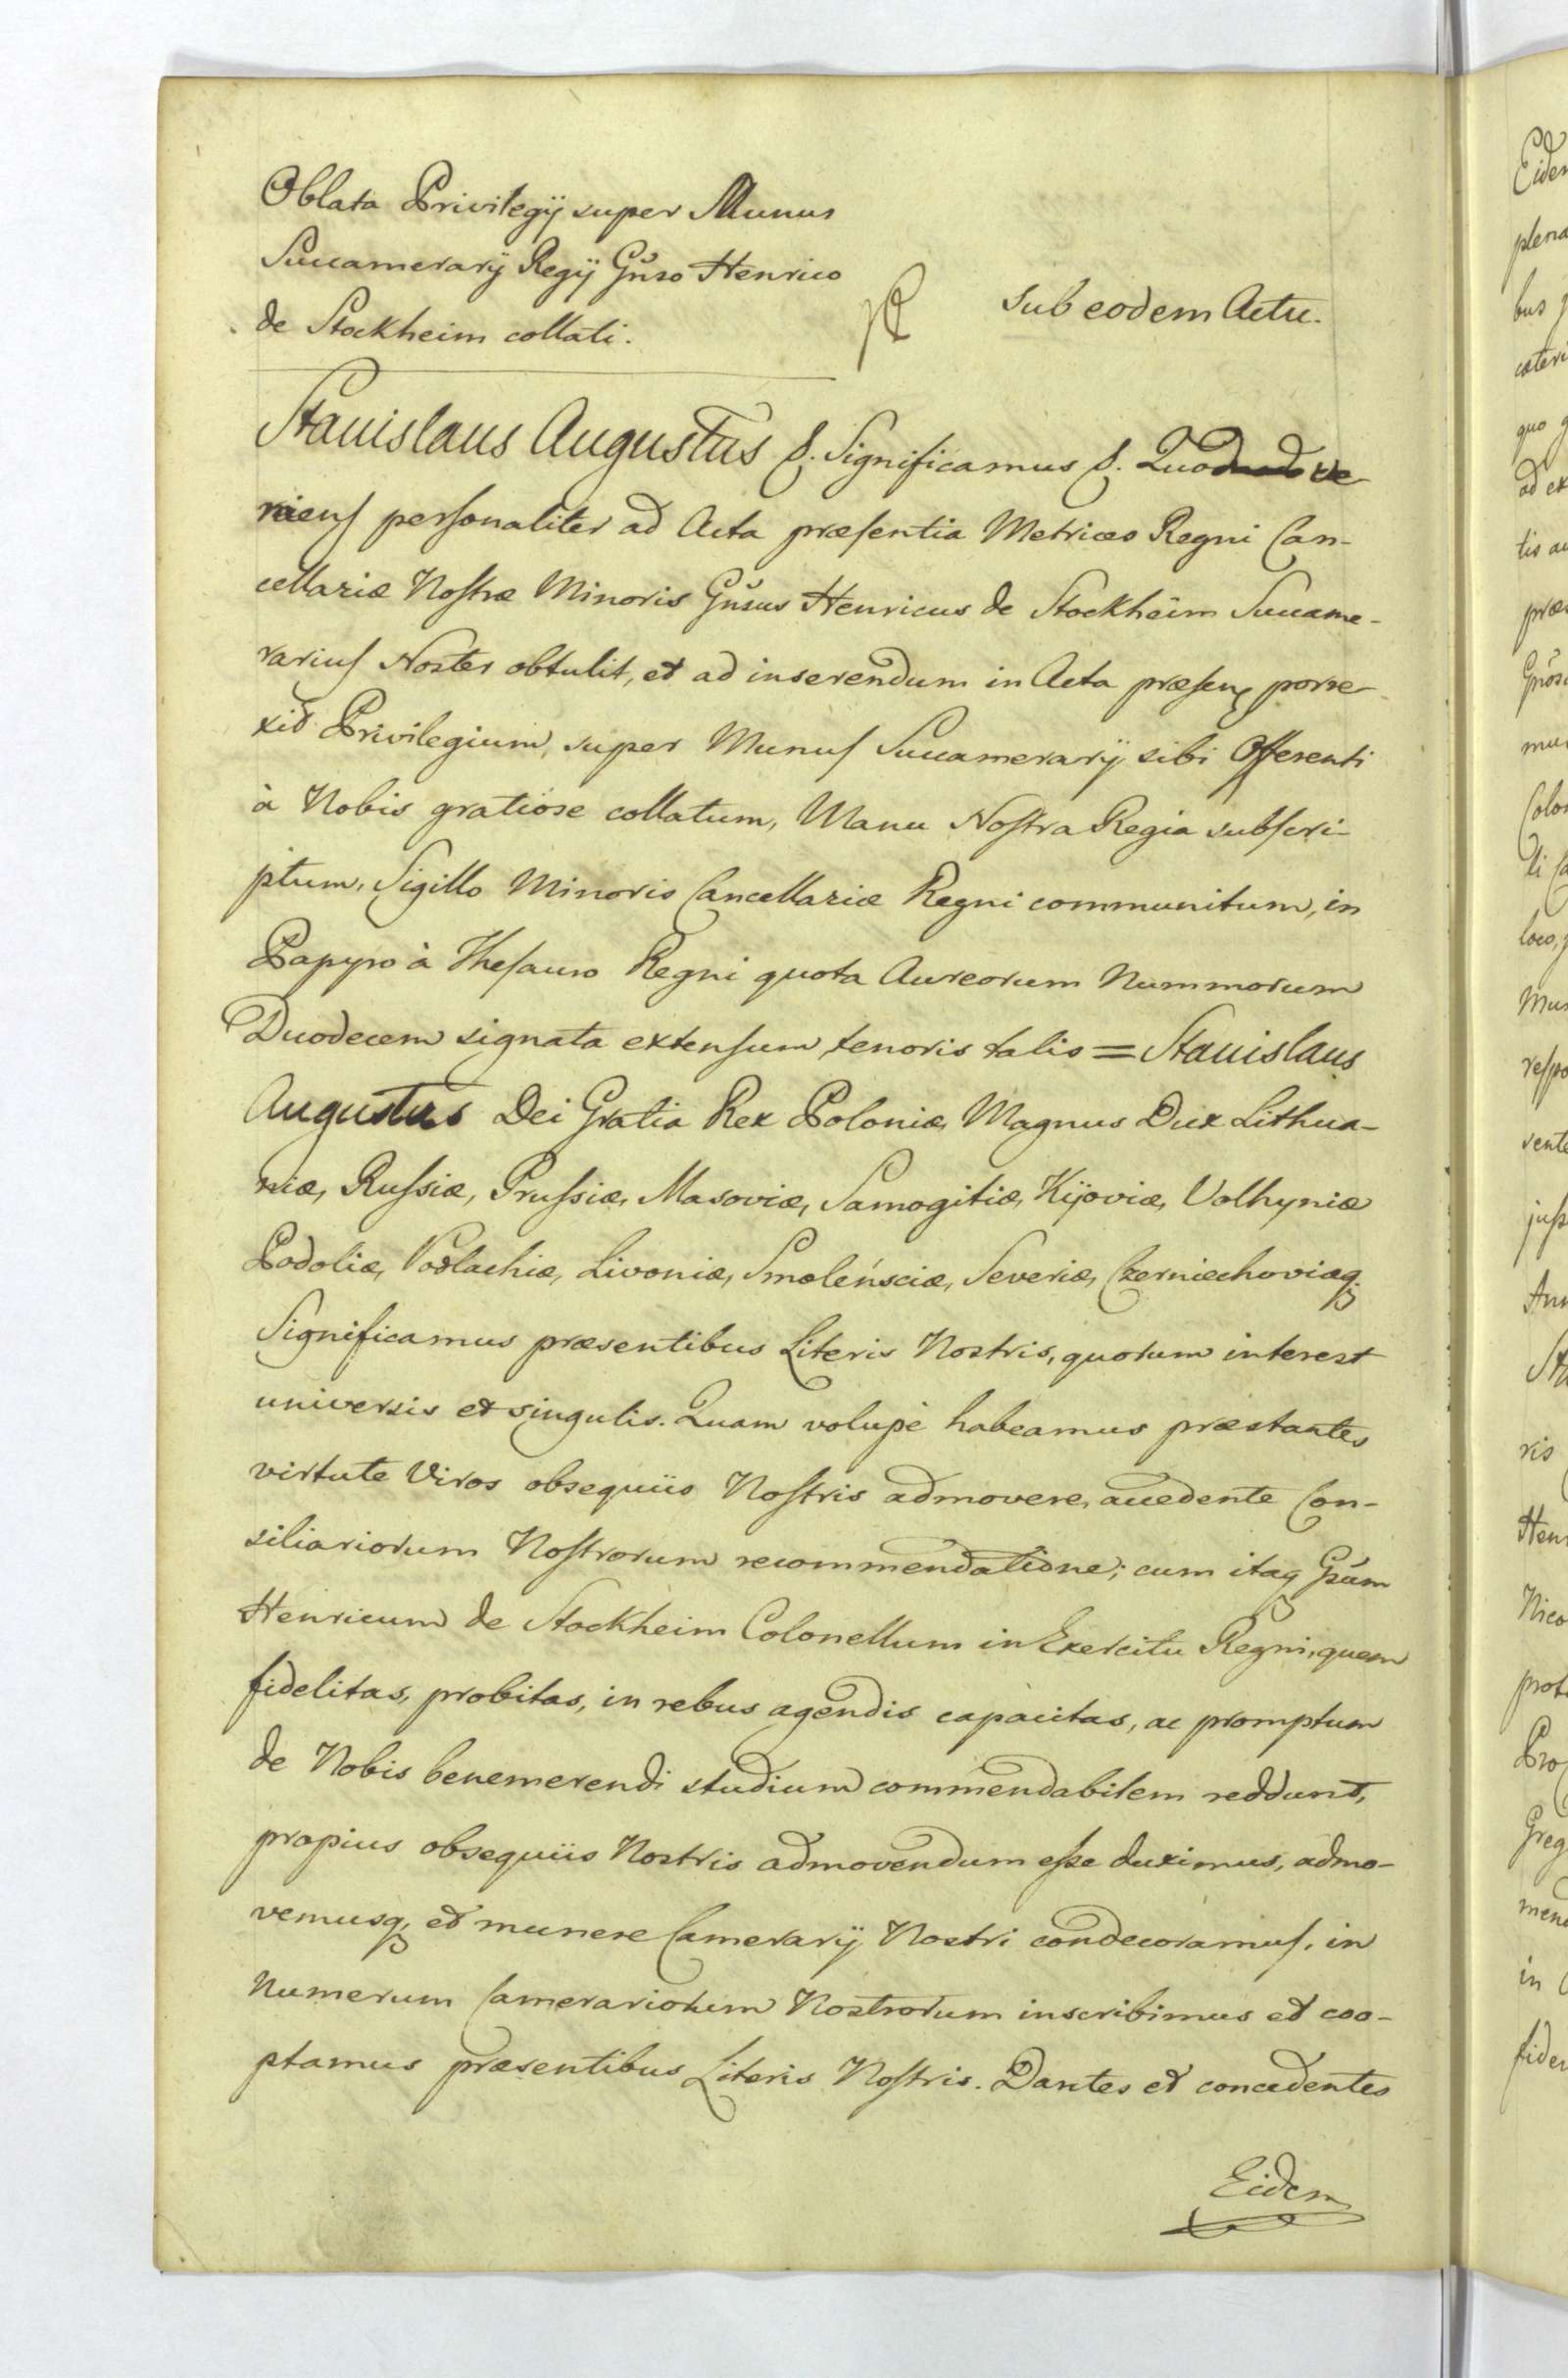 Oblata Privilegij super Munus
Succamerarij Regij Gnso Henrico
de Stockheim collati.
Sub eodem Actu.
Stanislaus Augustus &. Significamus &. Quod ve
niens personaliter ad Acta præsentia Metrices Regni Can-
cellariæ Nostræ Minoris Gnsus Henricus de Stockheim Succame-
rarius Noster obtulit, et ad inserendum in Acta præsens porre-
xit Privilegium, super Munus Succamerarij sibi Offerenti
à Nobis gratiose collatum, Manu Nostra Regia subscri-
ptum, Sigillo Minoris Cancellariæ Regni communitum, in
Papyro à Thesauro Regni quota Aureorum Nummorum
Duodecem signata extensum tenoris talis = Stanislaus
Augustus Dei Gratia Rex Poloniæ, Magnus Dux Lithua-
niæ, Russiæ, Prussiæ, Masoviæ, Samogitiæ, Kijoviæ, Volhyniæ
Podoliæ, Podlachiæ, Livoniæ, Smoleńsciæ, Severiæ, Czerniechoviæq;
Significamus præsentibus Literis Nostris, quorum interest
universis et singulis. Quam volupè habeamus præstantes
virtute Viros obsequiis Nostris admovere, accedente Con-
siliariorum Nostrorum recommendatione; cum itaq Gsum
Henricum de Stockheim Colonellum in Exercitu Regni, quem
fidelitas, probitas, in rebus agendis capacitas, ac promptum
de Nobis benemerendi studium commendabilem reddunt,
propius obsequiis Nostris admovendum esse duximus, admo-
vemusq; et munere Camerarij Nostri condecoramus, in
Numerum Camerariorum Nostrorum inscribimus et coo-
ptamus præsentibus Literis Nostris. Dantes et concedentes
Eidem